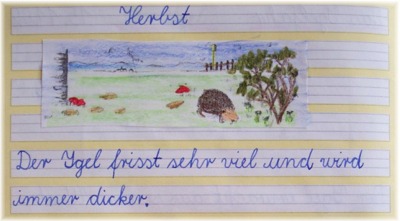 Herbst
Der Igel frisst sehr viel und wird
immer dicker.